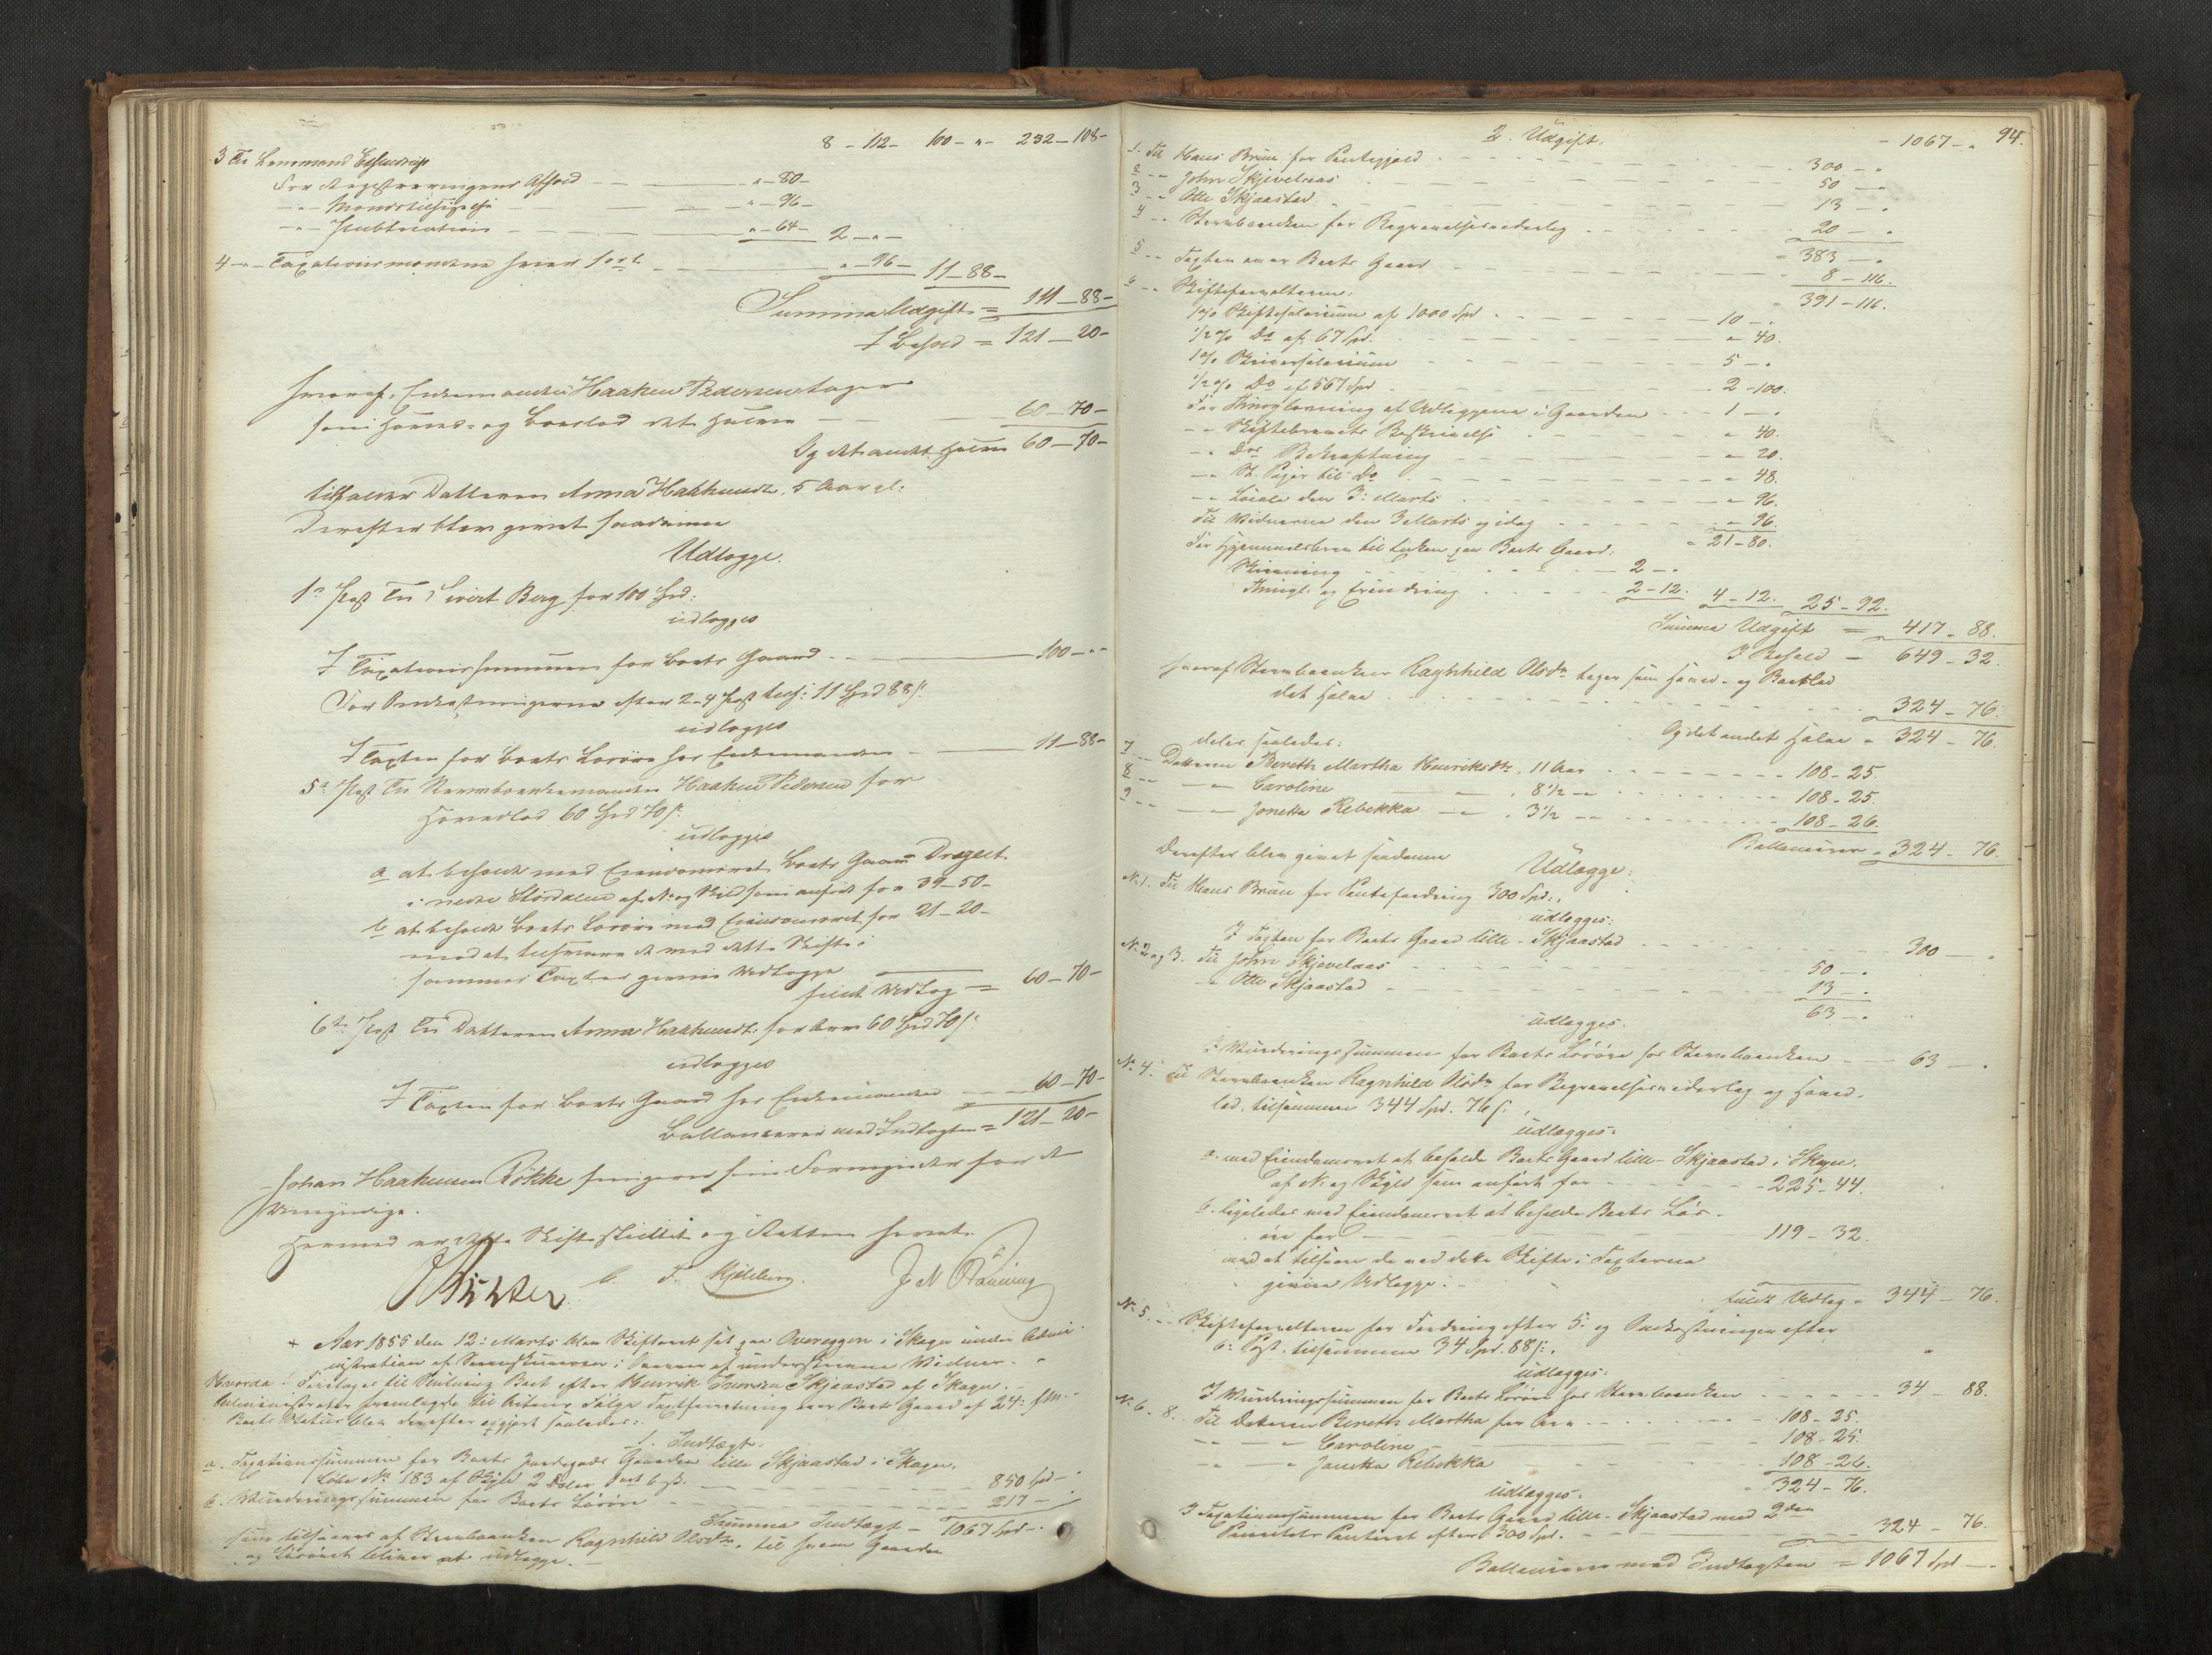 8 - 112 - 100 - „ - 232 - 108 -
3 Til Lensmand
For Registreringens Afhold - „ - 80 -
- „ - Mandtilsigelse - „ - 96 -
- „ - Publication - „ - 64 - 2 - „ -
4 - „ - Taxationsmændene hver 1 ort - „ - 96 - 11 - 88 -
Summa Udgift = 111 - 88 -
I Behold = 121 - 20 -
hvoraf Enkemanden Haaken Pedersen tager
som Hoved- og Boeslod det halve 60 - 70 -
Og det andet halve 60 - 70 -
tilfalder Datteren Anna Haakensdr. 5 Aar gl:
Derefter blev gjort saadanne
Udlægge.
1ste Post Til Sivert Berg for 100 Spd:
udlægges
I Taxationssummen for Boets Gaard - 100 - „ -
For Omkostningerne efter 2-4 Post tils: 11 Spd 88 s:
udlægges
I Taxten for Boets Løsøre hos Enkemanden - 11 - 88 -
5te Post Til Stervboenkemanden Haaken Pedersen for
Hovedlod 60 Spd 70 s:
udlægges
a at beholde med Eiendomsret Boets Gaard Draglet
i nedre Størdalen af N: og Skyld som anført for 39 - 50 -
b at beholde Boets Løsøre med Eiendomsret for 21 - 20 -
mod at tilsvare de ved dette Skifte i
sammes Taxter givne Udlægge
fuldt Udlæg = 60 - 70 -
6te Post Til Datteren Anna Haakensdr. for Arv 60 Spd 70 s:
udlægges
I Taxten for Boets Gaard hos Enkemanden - 60 - 70 -
Ballancerer med Indtægten = 121 - 20 -
Johan Haakensen Røkke fungerer som Formynder for den
Umyndige.
Hermed er dette Skifte sluttet og Retten hævet.
+ Aar 1855 den 12: Marts blev Skifteret sat paa Overeggen i Skogn under Admi-
nistration af Sorenskriveren i Overvær af underskrevne Vidner.
Hvorda: Foretages til Slutning Boet efter Henrik Iversen Skjaastad af Skogn.
Administrator fremlagde til Acten: Følge Taxtforretning over Boets Gaard af 24: f. M.
Boets Status blev derefter opgjort saaledes:
1. Indtægt.
a. Taxationssummen for Boets Jordegods Gaarden lille Skjaastad i Skogn,
Løbe No 183 af Skyld 2 Daler 1 ort 6 sk. 850 Spd - „
b. Vurderingssummen for Boets Løsøre 217 - „
Summa Indtægt - 1067 Spd - „
som tilsvares af Stervboenken Ragnhild Olsdr. til hvem Gaarden
og Løsøret bliver at udlægge.
94.
2. Udgift. - 1067 - „
1. Til Hans Bruun for Pantegjæld 300 - „
2 - „ John Skjevelaas 50 - „
3 - „ Otte Skjaastad 13 - „
4 - „ Stervboenken for Begravelsesvederlag 20 - „
383 - „
5 - „ Taxten over Boets Gaard 8 - 116.
391 - 116.
6 - „ Skifteforvalteren:
1 % Skiftesalarium af 1000 Spd 10 - „
1/2 % Do af 67 Spd. „ 40.
1 % Skriversalarium 5 - „
1/2 % Do af 567 Spd 2 - 100.
For Thinglæsning af Udlæggene i Gaarden 1 - „
- „ Skiftebrevets Beskrivelse „ 40.
- „ Dets Bekræftning „ 20.
- „ St. Papir til Do „ 48.
- „ Locale den 3: Marts „ 96.
Til Vidnerne den 3 Marts og idag „ 96.
„ 21 - 80.
For Hjemmelsbrev til Enken paa Boets Gaard:
Skrivning 2 - „
Thingl. og Erindring 2 - 12. 4 - 12. 25 - 92.
Summa Udgift = 417 - 88.
I Behold = 649 - 32.
hvoraf Stervboenken Ragnhild Olsdr tager som Hoved- og Boeslod
det halve 324 - 76.
Og det andet halve = 324 - 76.
deles saaledes:
7 - „ Datteren Bereth Martha Henriksdr., 11 Aar 108 - 25.
8 - „ - „ Caroline - „ 8 1/2 - „ 108 - 25.
9 - „ - „ Jonetta Rebekka - „ 3 1/2 - „ 108 - 26.
Ballancerer = 324 - 76.
Derefter blev gjort saadanne
Udlægge:
No 1. Til Hans Bruun for Pantefordring 300 Spd:,
udlægges:
I Taxten for Boets Gaard lille-Skjaastad 300 - „
No 2 og 3. Til John Skjevelaas 50 - „
- „ Otte Skjaastad 13 - „
63 - „
udlægges:
I Vurderingssummen for Boets Løsøre hos Stervboenken 63 - „
No 4. Til Stervboenken Ragnhild Olsdr for Begravelsesvederlag og Hoved-
lod, tilsammen 344 Spd. 76 s:,
udlægges:
a. med Eiendomsret at beholde Boets Gaard lille-Skjaastad i Skogn,
af N: og Skyld som anført for 225 - 44.
b. ligeledes med Eiendomsret at beholde Boets Løs-
øre for 119 - 32.
mod at tilsvare de ved dette Skifte i Taxterne
givne Udlægge:
fuldt Udlæg = 344 - 76.
No 5. - „ Skifteforvalteren for Fordring efter 5: og Omkostninger efter
6: Post, tilsammen 34 Spd. 88 s:,
udlægges:
I Vurderingssummen for Boets Løsøre hos Stervboenken 34 - 88.
No 6-8. Til Datteren Bereth Martha for Arv 108 - 25.
- „ - „ Caroline 108 - 25.
- „ - „ Jonetta Rebekka 108 - 26.
324 - 76.
udlægges:
I Taxationssummen for Boets Gaard lille-Skjaastad med 2den
Prioritets Panteret efter 300 Spd. 324 - 76.
Ballancerer med Indtægten = 1067 Spd - „